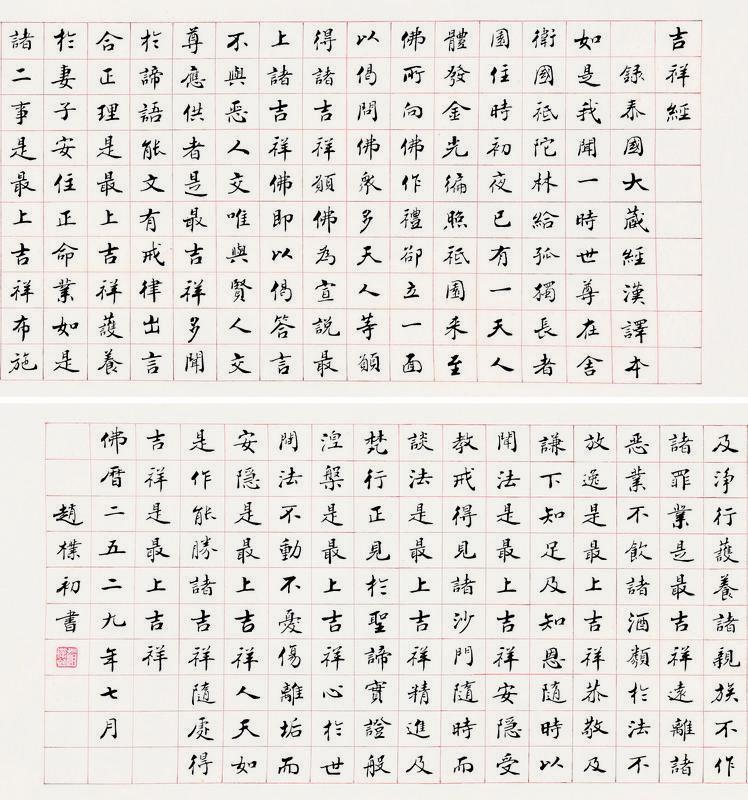 吉祥經
錄泰國大藏經漢譯本
如是我聞一時世尊在舍
衛國祇陀林給孤獨長者
園住時初夜已有一天人
體發金光徧照祇園来至
佛所向佛作禮卻立一面
以偈問佛衆多天人等願
得諸吉祥願佛為宣說最
上諸吉祥佛即以偈答言
不與惡人交唯與賢人交
尊應供者是最吉祥多聞
於諦語能文有戒律出言
合正理是最上吉祥護養
於妻子安住正命業如是
諸二事是最上吉祥布施
及淨行護養諸親族不作
諸罪業是最吉祥遠離諸
惡業不飲諸酒類於法不
放逸是最上吉祥恭敬及
謙下知足及知恩隨時以
聞法是最上吉祥安隱受
教戒得見諸沙門隨時而
談法是最上吉祥精進及
梵行正見於聖諦實證般
湼槃是最上吉祥心於世
間法不動不憂傷離垢而
安隱是最上吉祥人天如
是作能勝諸吉祥隨處得
吉祥是最上吉祥
佛曆二五二九年七月
趙樸初書